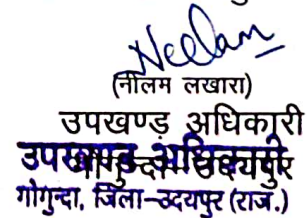 Neelam
(नीलम लखारा)
उपखण्ड़ अधिकारी
उपखण्ड अधिकारी
गोगुन्दा, जिला–उदयपुर (राज.)